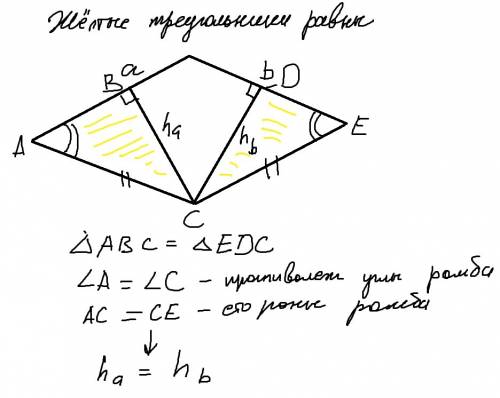 Жёлтые треугольники равны
a
b
B
D
A
E
hₐ
h_b
C
△ABC = △EDC
∠A = ∠C – противолеж углы ромба
AC = CE – стороны ромба
↓
hₐ = h_b